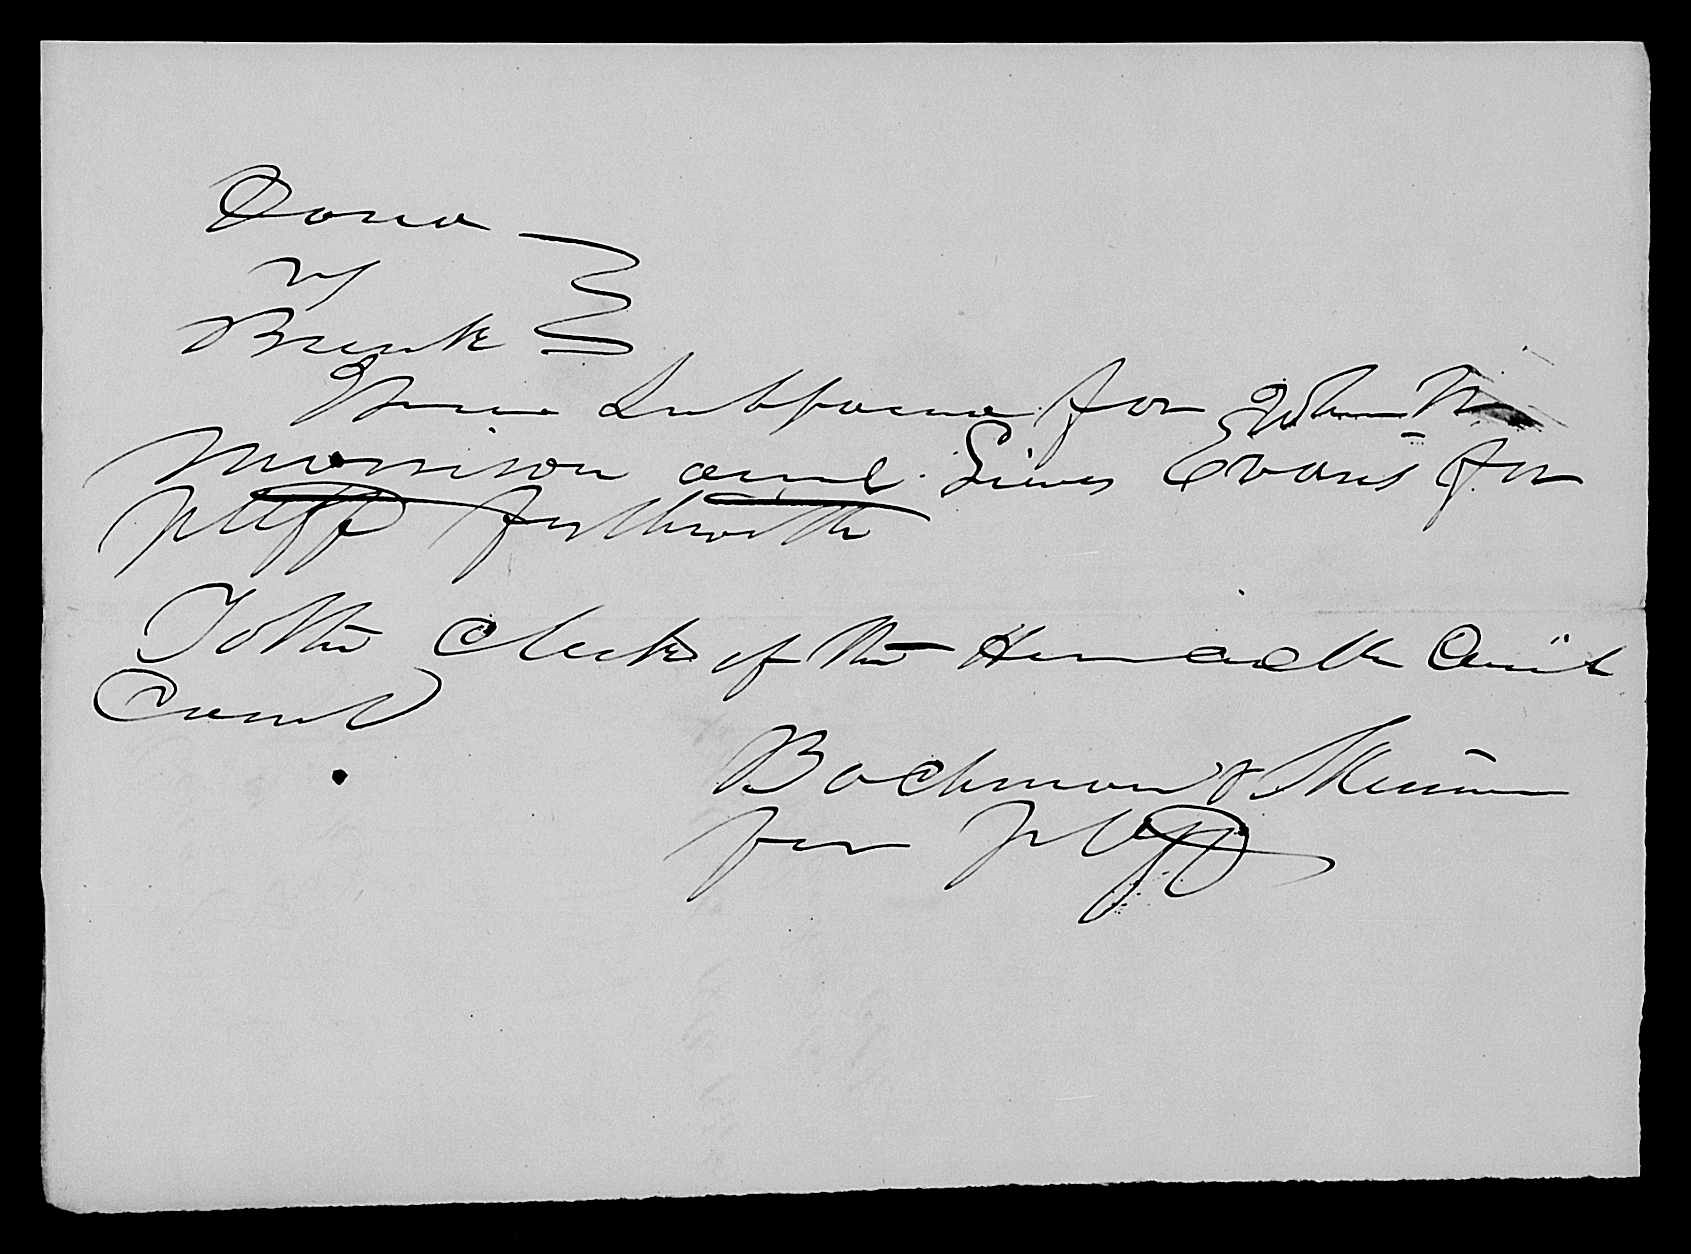 Dona
vs
Brunk
Issue Subpoena for John M
Morrison and Lewis Evans for
pltff forthwith
To the Clerk of the Hon Circuit
Court
Bachman & Skinner
for pltff